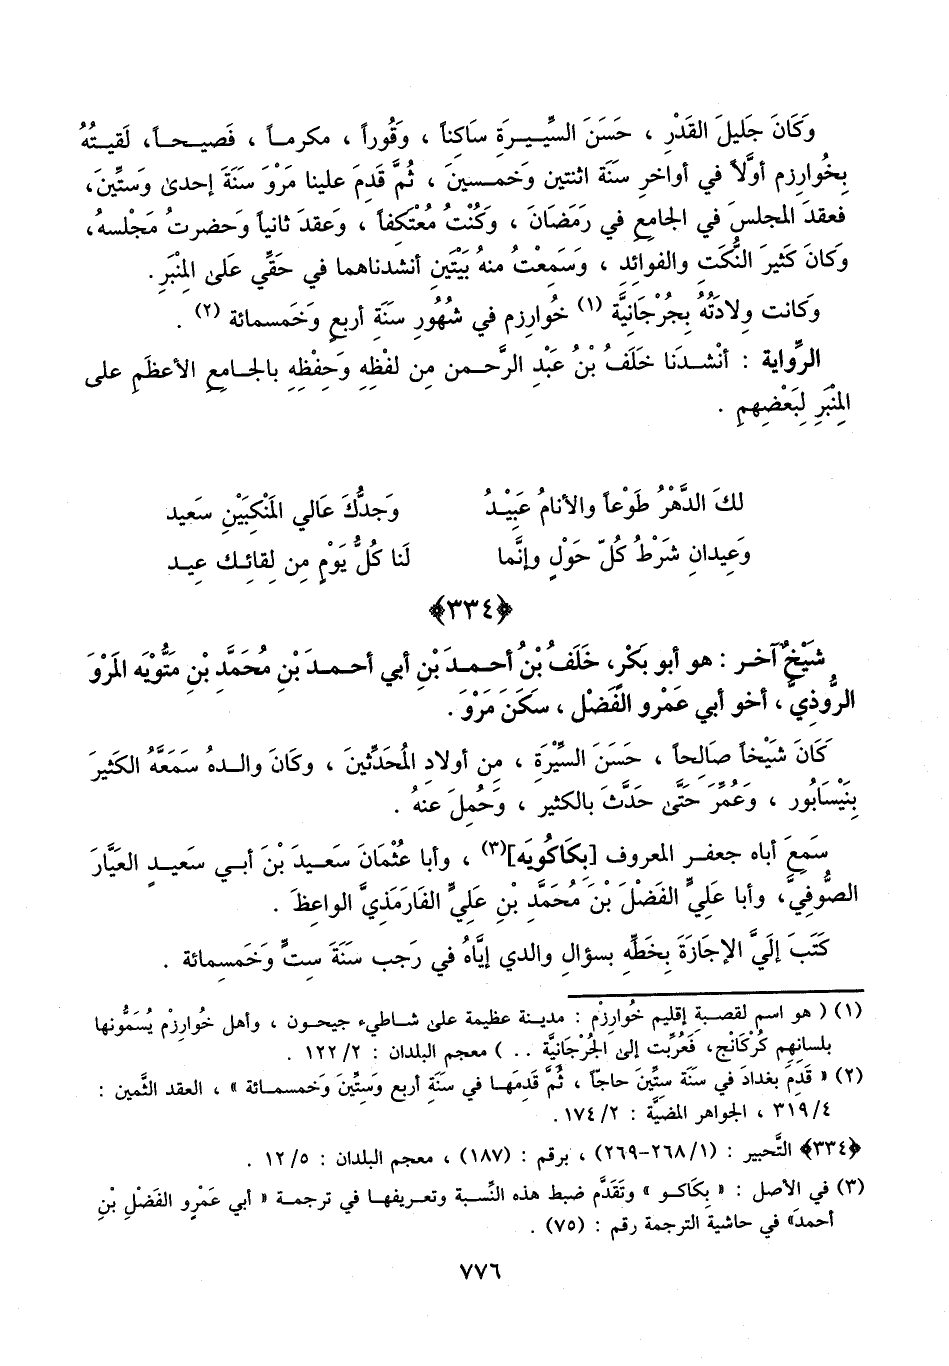 وَكَانَ جَلِيلَ القَدْرِ ، حَسَنَ السِّيرَةِ سَاكِناً ، وَقُوراً ، مكرماً ، فَصيحاً، لَقيتُهُ
بِخُوارِزم أوَّلاً في أواخرِ سنَةَ اثنتين وَخَمسينَ ، ثُمَّ قَدِمَ علينا مَرْوَ سَنَةَ إحدىٰ وَستِّينَ،
فعقدَ المجلسَ في الجَامعِ في رَمَضَانَ ، وَكُنْتُ مُعْتَكِفاً ، وَعقدَ ثانياً وَحضرتُ مَجْلسهُ،
وَكانَ كَثيرَ النُّكَتِ والفَوائِدِ ، وَسَمعْتُ منهُ بَيْتَينِ أنشدناهما في حَقِّي عَلىٰ المِنْبَرِ .
وَكانت وِلادَتُهُ بِجُرْجَانِيَّةَ (١) خُوارِزم في شهُورِ سنَةِ أربعٍ وَخَمسمائة (٢) .
الرِّواية : أنْشدَنا خَلَفُ بْنُ عَبْدِ الرَّحمن مِن لفْظِهِ وَحِفْظِهِ بالجَامعِ الأعظَمِ على
المِنْبَرِ لِبَعْضِهمِ .
لكَ الدَّهْرُ طَوْعاً والأنامُ عَبِيْدُ وَجدُّكَ عَالي المَنْكِبَيْنِ سَعيد
وَعِيدانِ شَرْطُ كُلّ حَوْلٍ وإنَّما لَنا كُلُّ يَوْمٍ مِن لِقائِك عِيد
﴿٣٣٤﴾
شَيْخٌ آخر : هو أبو بَكْرٍ، خَلَفُ بْنُ أحمدَ بْنِ أبي أحمدَ بْنِ مُحَمَّدِ بْنِ مَتُّويَه المَرْوَ
الرُّوذِيُّ ، أخو أبي عَمْرو الفَضْل ، سكَنَ مَرْوَ .
كَانَ شيَخْاً صَالِحاً ، حَسَنَ السيِّرْةَ ، مِن أولادِ المُحَدِّثينَ ، وكَانَ والدهُ سَمَعَّهُ الكثيرَ
بِنَيْسَابُور ، وَعُمِّرَ حَتَّىٰ حَدَّثَ بالكثيرِ ، وَحُملَ عنهُ .
سَمِعَ أباه جعفر المعروف [بِكَاكُويَه](٣) ، وأبا عُثْمَانَ سَعيدَ بْنَ أبي سَعيدٍ العيَّارَ
الصُّوفيَّ، وأبا عَليٍّ الفَضْلَ بْنَ مُحَمَّدِ بْنِ عَليٍّ الفَارَمَذيَّ الواعِظَ .
كَتَبَ إلَيَّ الإجَازَةَ بِخَطِّهِ بِسؤالِ والدي إيَّاهُ في رَجب سنَةَ ستٍّ وَخَمسمائة .
(١) ( هو اسم لقصبة إقليم خُوارِزْم : مدينة عظيمة على شاطيء جيحون ، وأهل خُوارِزْم يُسَمُّونها
بلسانِهِم كُركَانْج، فَعُرِّبت إلى الجُرْجَانِيَّة . . ) معجم البلدان : ١٢٢/٢ .
(٢) « قَدِمَ بغدادَ في سَنَة ستِّينَ حاجّاً ، ثُمَّ قَدِمَها في سنَةِ أربع وَستِّينَ وَخمسمائة » ، العقد الثَّمين :
٣١٩/٤ ، الجواهر المضيَّة : ١٧٤/٢ .
﴿٣٣٤﴾ التَّحبير : (٢٦٨/١-٢٦٩) ، برقم : (١٨٧) ، معجم البلدان : ١٢/٥ .
(٣) في الأصل : « بِكَاكو » وتَقَدَّم ضبط هذه النِّسبة وتعريفها في ترجمة « أبي عَمْرِو الفَضْلِ بْنِ
أحمدَ» في حاشية الترجمة رقم : (٧٥) .
٧٧٦